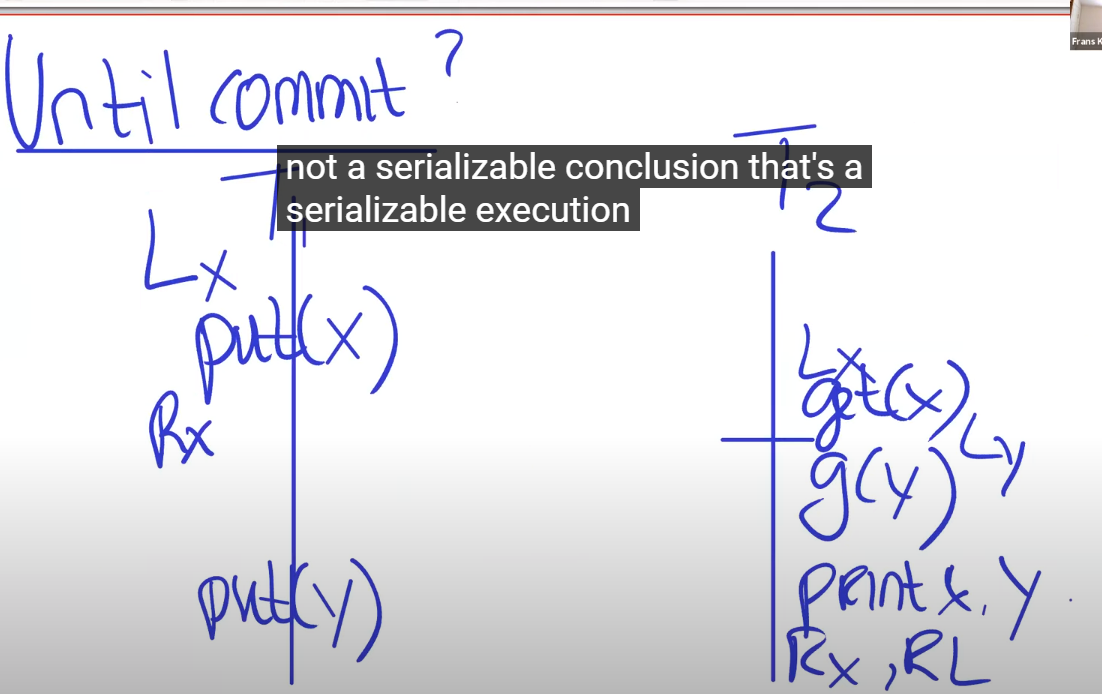 Until commit?
T1
T2
not a serializable conclusion that's a
serializable execution
Lx
put(x)
Rx
put(y)
Lx
get(x)
Ly
g(y)
print x, y
Rx, RL
Frans K